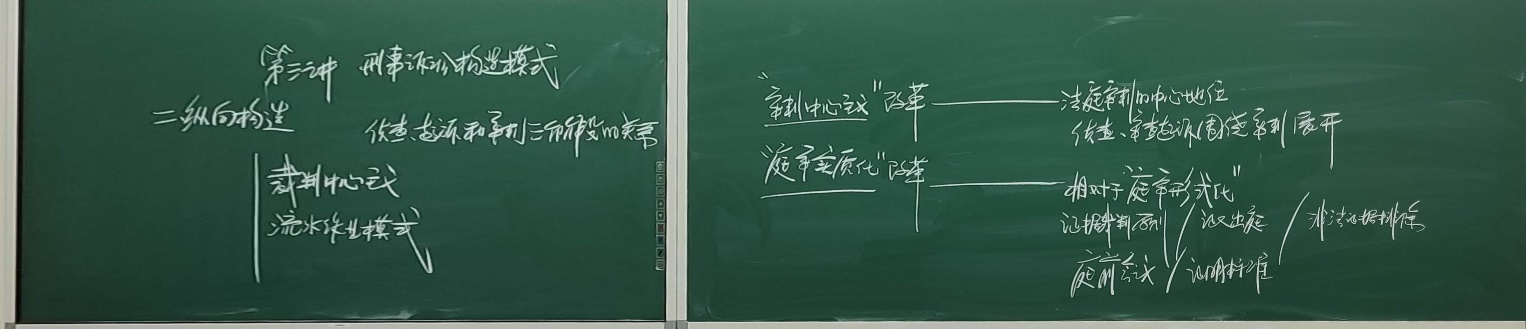 第三讲 刑事诉讼构造模式
二 纵向构造
侦查、起诉和审判三个阶段的关系
裁判中心主义
流水作业模式
"审判中心主义"改革 —— 法庭审判的中心地位
侦查、审查起诉围绕审判展开
"庭审实质化"改革 —— 相对于"庭审形式化"
证据裁判原则 / 证人出庭 / 非法证据排除
庭前会议 / 证明标准